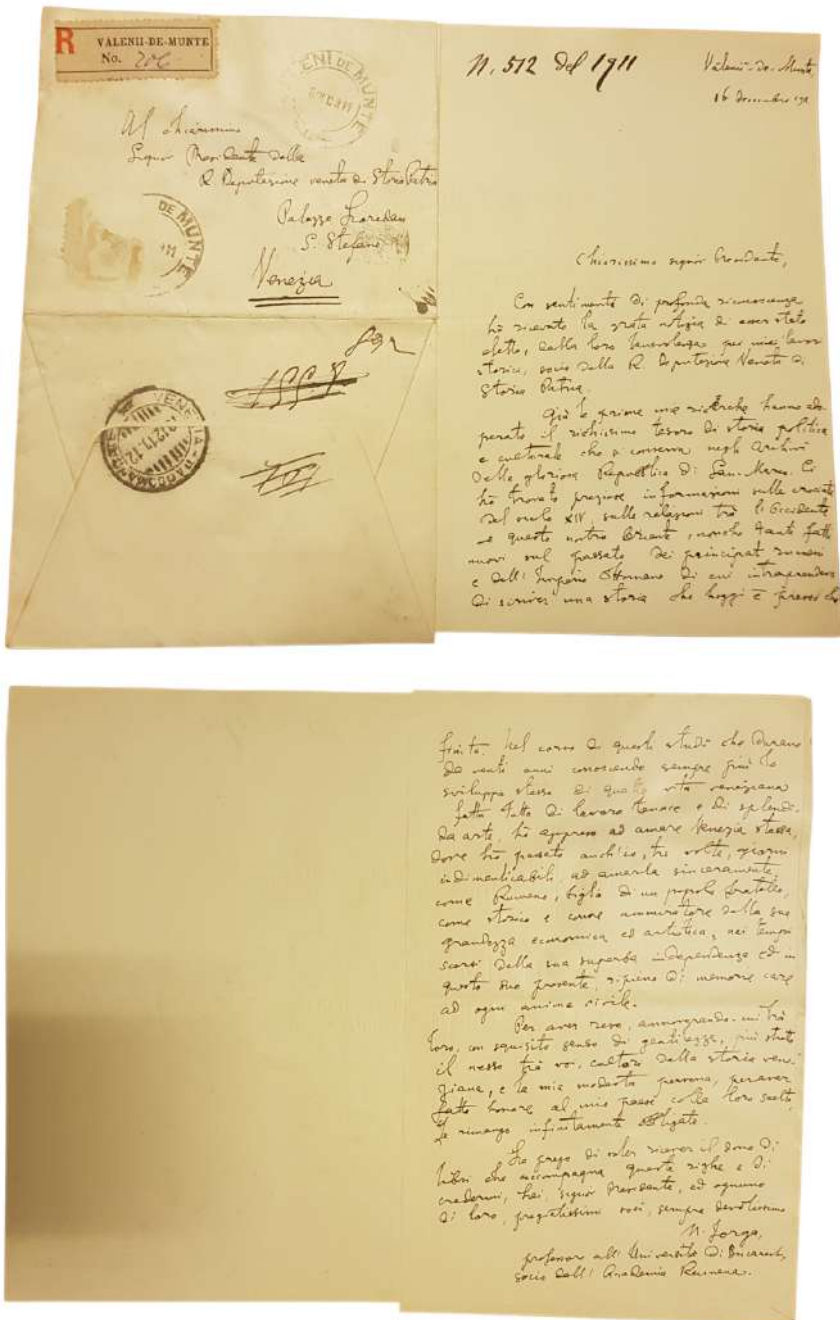 R VALENII-DE-MUNTE
No. 206
VENI DE MUNTE
Al chiarissimo
Signor Presidente della
R. Deputazione veneta di Storia Patria
Palazzo Loredan
S. Stefano
Venezia
DE MUNTE
892
VENEZIA
N. 512 del 1911
Vălenii-de-Munte,
16 decembre 1911
Chiarissimo signor Presidente,
Con sentimento di profonda riconoscenza
hò ricevuto la grata notizia di esser stato
eletto, dalla loro benevolenza per miei lavori
storici, socio della R. Deputazione Veneta di
Storia Patria.
Già le prime mie ricerche hanno ado-
perato il richissimo tesoro di storia politica
e culturale che si conserva negli archivi
della gloriosa Repubblica di San-Marco. Ci
hò trovato preziose informazioni sulle crociate
del secolo XIV, sulle relazioni trà l'Occidente
e questo nostro Oriente, nonchè tanti fatti
nuovi sul passato dei principati rumeni
e dell'Imperio Ottomano di cui intraprendere
di scriver una storia che hoggi è presso che
finita. Nel corso di questi studi che durano
da venti anni conoscendo sempre più lo
sviluppo stesso di quella vita veneziana
fatta tutta di lavoro tenace e di splendi-
da arte, hò appreso ad amare Venezia stessa,
dove hò passato anch'io, tre volte, giorni
indimenticabili, ad amarla sinceramente,
come Rumeno, figlio di un popolo fratello,
come storico e come ammiratore della sua
grandezza economica ed artistica, nei tempi
scorsi della sua superba independenza ed in
questo suo presente, ripieno di memorie care
ad ogni anima civile.
Per aver reso, annoverando-mi trà
loro, con squisito senso di gentilezza, più stretto
il nesso trà voi, cultori della storia vene-
ziana, e la mia modesta persona, per aver
fatto honore al mio paese colla loro scelta,
Le rimango infinitamente obligato.
La prego di voler ricever il dono di
libri che accompagna queste righe e di
credermi, Lei, signor Presidente, ed ognuno
di loro, pregiatissimi soci, sempre devotissimo
N. Jorga,
professor all'Università di Bucarest,
socio dell'Academia Rumena.